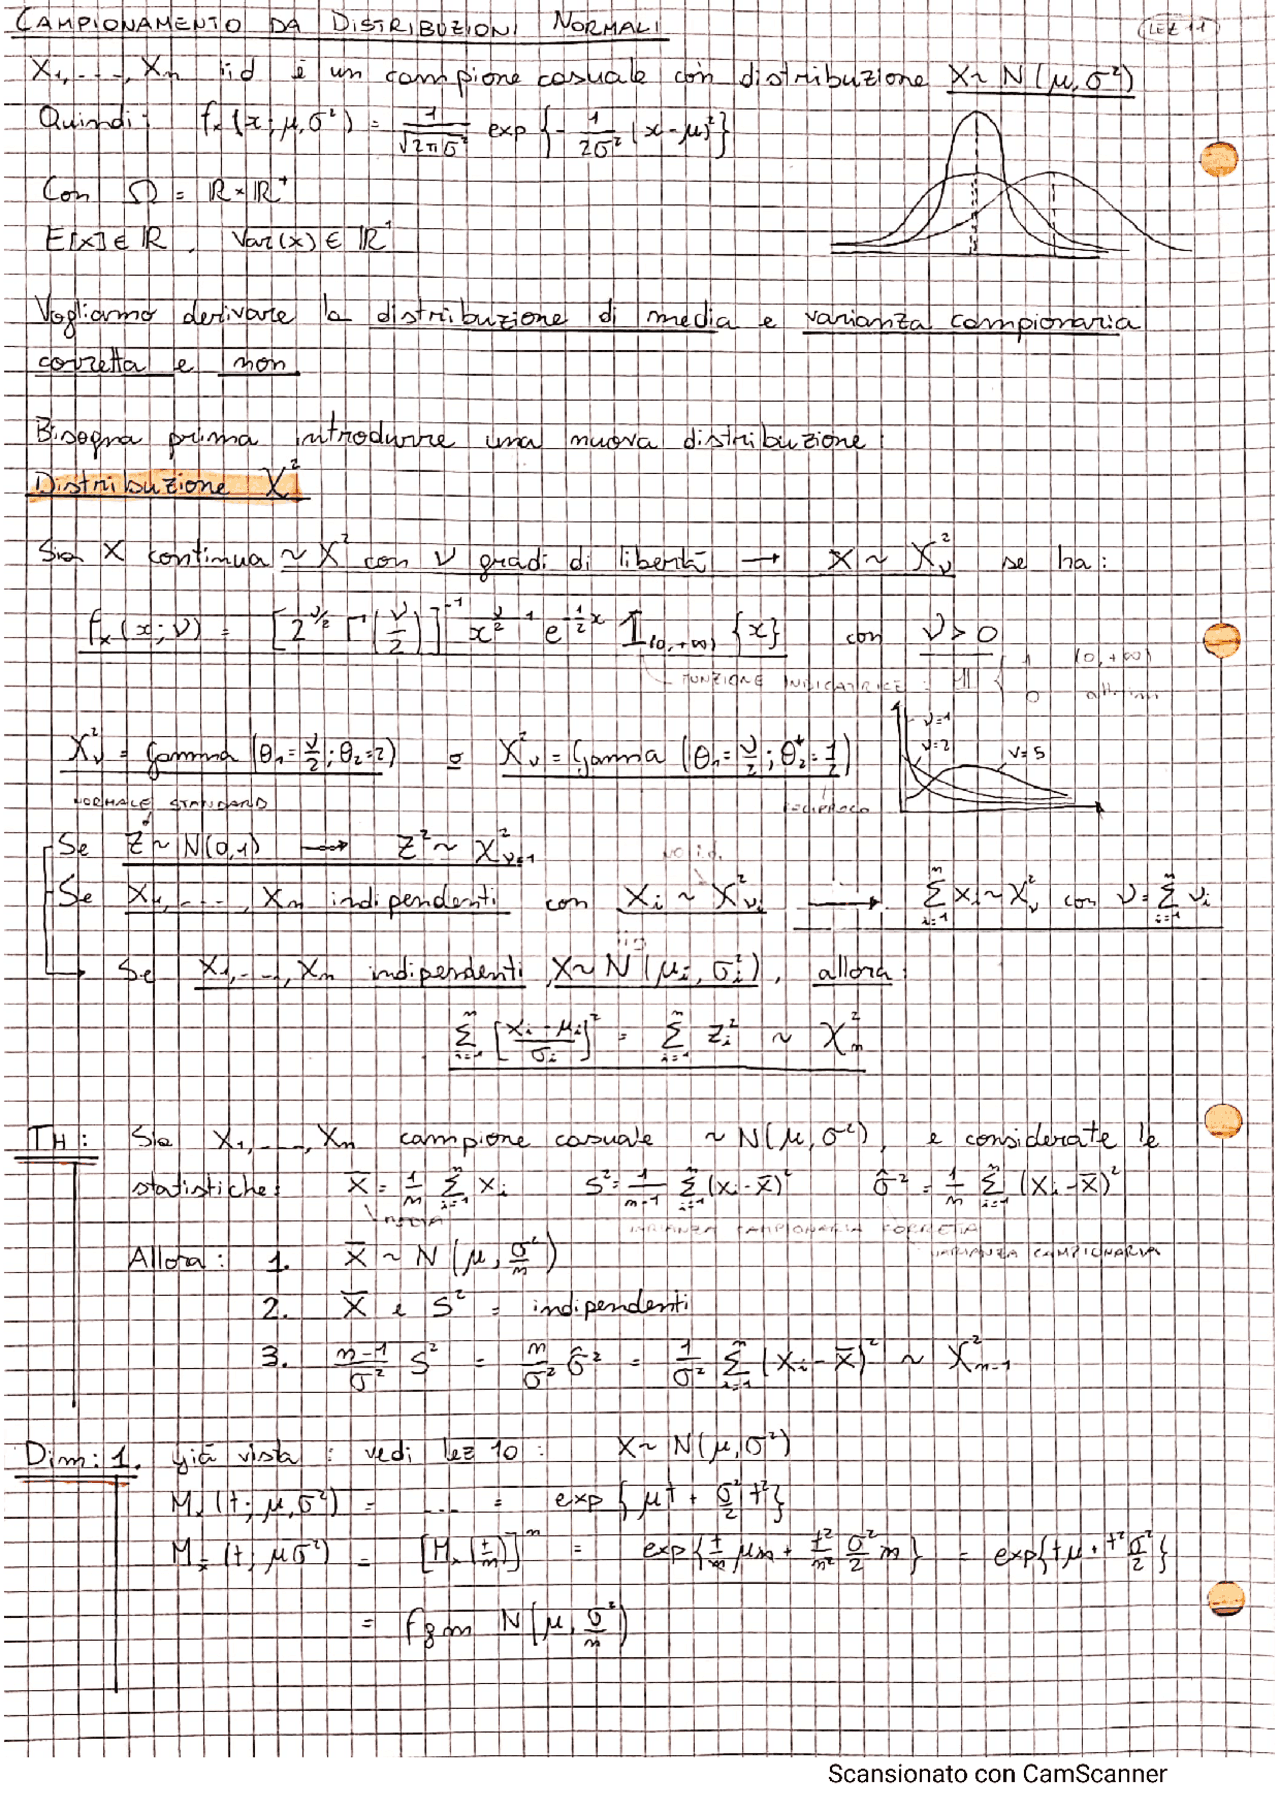 CAMPIONAMENTO DA DISTRIBUZIONI NORMALI (LEZ 11)
X₁,....,Xₙ iid è un campione casuale con distribuzione X ~ N(μ,σ²)
Quindi: fₓ(x; μ,σ²) = 1/√(2πσ²) exp{-1/(2σ²) (x-μ)²}
Con Ω = ℝ×ℝ⁺
E[x] ∈ ℝ, Var(x) ∈ ℝ⁺
Vogliamo derivare la distribuzione di media e varianza campionaria
corretta e non
Bisogna prima introdurre una nuova distribuzione:
Distribuzione X²
Sia X continua ~ X² con ν gradi di libertà → X ~ X²ᵥ se ha:
fₓ(x; ν) = [2^(ν/2) Γ(ν/2)]⁻¹ x^(ν/2 - 1) e^(-½x) 𝟙(0,+∞){x} con ν > 0
FUNZIONE INDICATRICE: 𝟙 { 1 (0,+∞)
0
ν=1
ν=2
ν=5
X²ᵥ = Gamma (θ₁=ν/2; θ₂=2) o X²ᵥ = Gamma (θ₁=ν/2; θ₂*=1/2)
NORMALE STANDARD RECIPROCO
Se Z ~ N(0,1) → Z² ~ X²ᵥ₌₁
NO i.d.
Se X₁,....,Xₙ indipendenti con Xᵢ ~ X²ᵥᵢ → Σᵢ₌₁ⁿ Xᵢ ~ X²ᵥ con ν = Σᵢ₌₁ⁿ νᵢ
Se X₁,...,Xₙ indipendenti, X ~ N(μᵢ, σᵢ²), allora:
Σᵢ₌₁ⁿ [(Xᵢ-μᵢ)/σᵢ]² = Σᵢ₌₁ⁿ Zᵢ² ~ X²ₙ
TH: Sia X₁,....,Xₙ campione casuale ~ N(μ,σ²), e considerate le
statistiche: X̄ = 1/n Σᵢ₌₁ⁿ Xᵢ S² = 1/(n-1) Σᵢ₌₁ⁿ (Xᵢ-X̄)² σ̂² = 1/n Σᵢ₌₁ⁿ (Xᵢ-X̄)²
MEDIA VARIANZA CAMPIONARIA CORRETTA
VARIANZA CAMPIONARIA
Allora: 1. X̄ ~ N(μ, σ²/n)
2. X̄ e S² = indipendenti
3. (n-1)/σ² S² = n/σ² σ̂² = 1/σ² Σᵢ₌₁ⁿ (Xᵢ-X̄)² ~ X²ₙ₋₁
Dim: 1. già vista: vedi lez 10: X ~ N(μ,σ²)
Mₓ(t; μ,σ²) = .... = exp{μt + σ²/2 t²}
Mx̄(t; μσ²) = [Mₓ(t/n)]ⁿ = exp{t/n μn + t²/n² σ²/2 n} = exp{tμ + t² σ²/2}
= fgm N(μ, σ²/n)
Scansionato con CamScanner